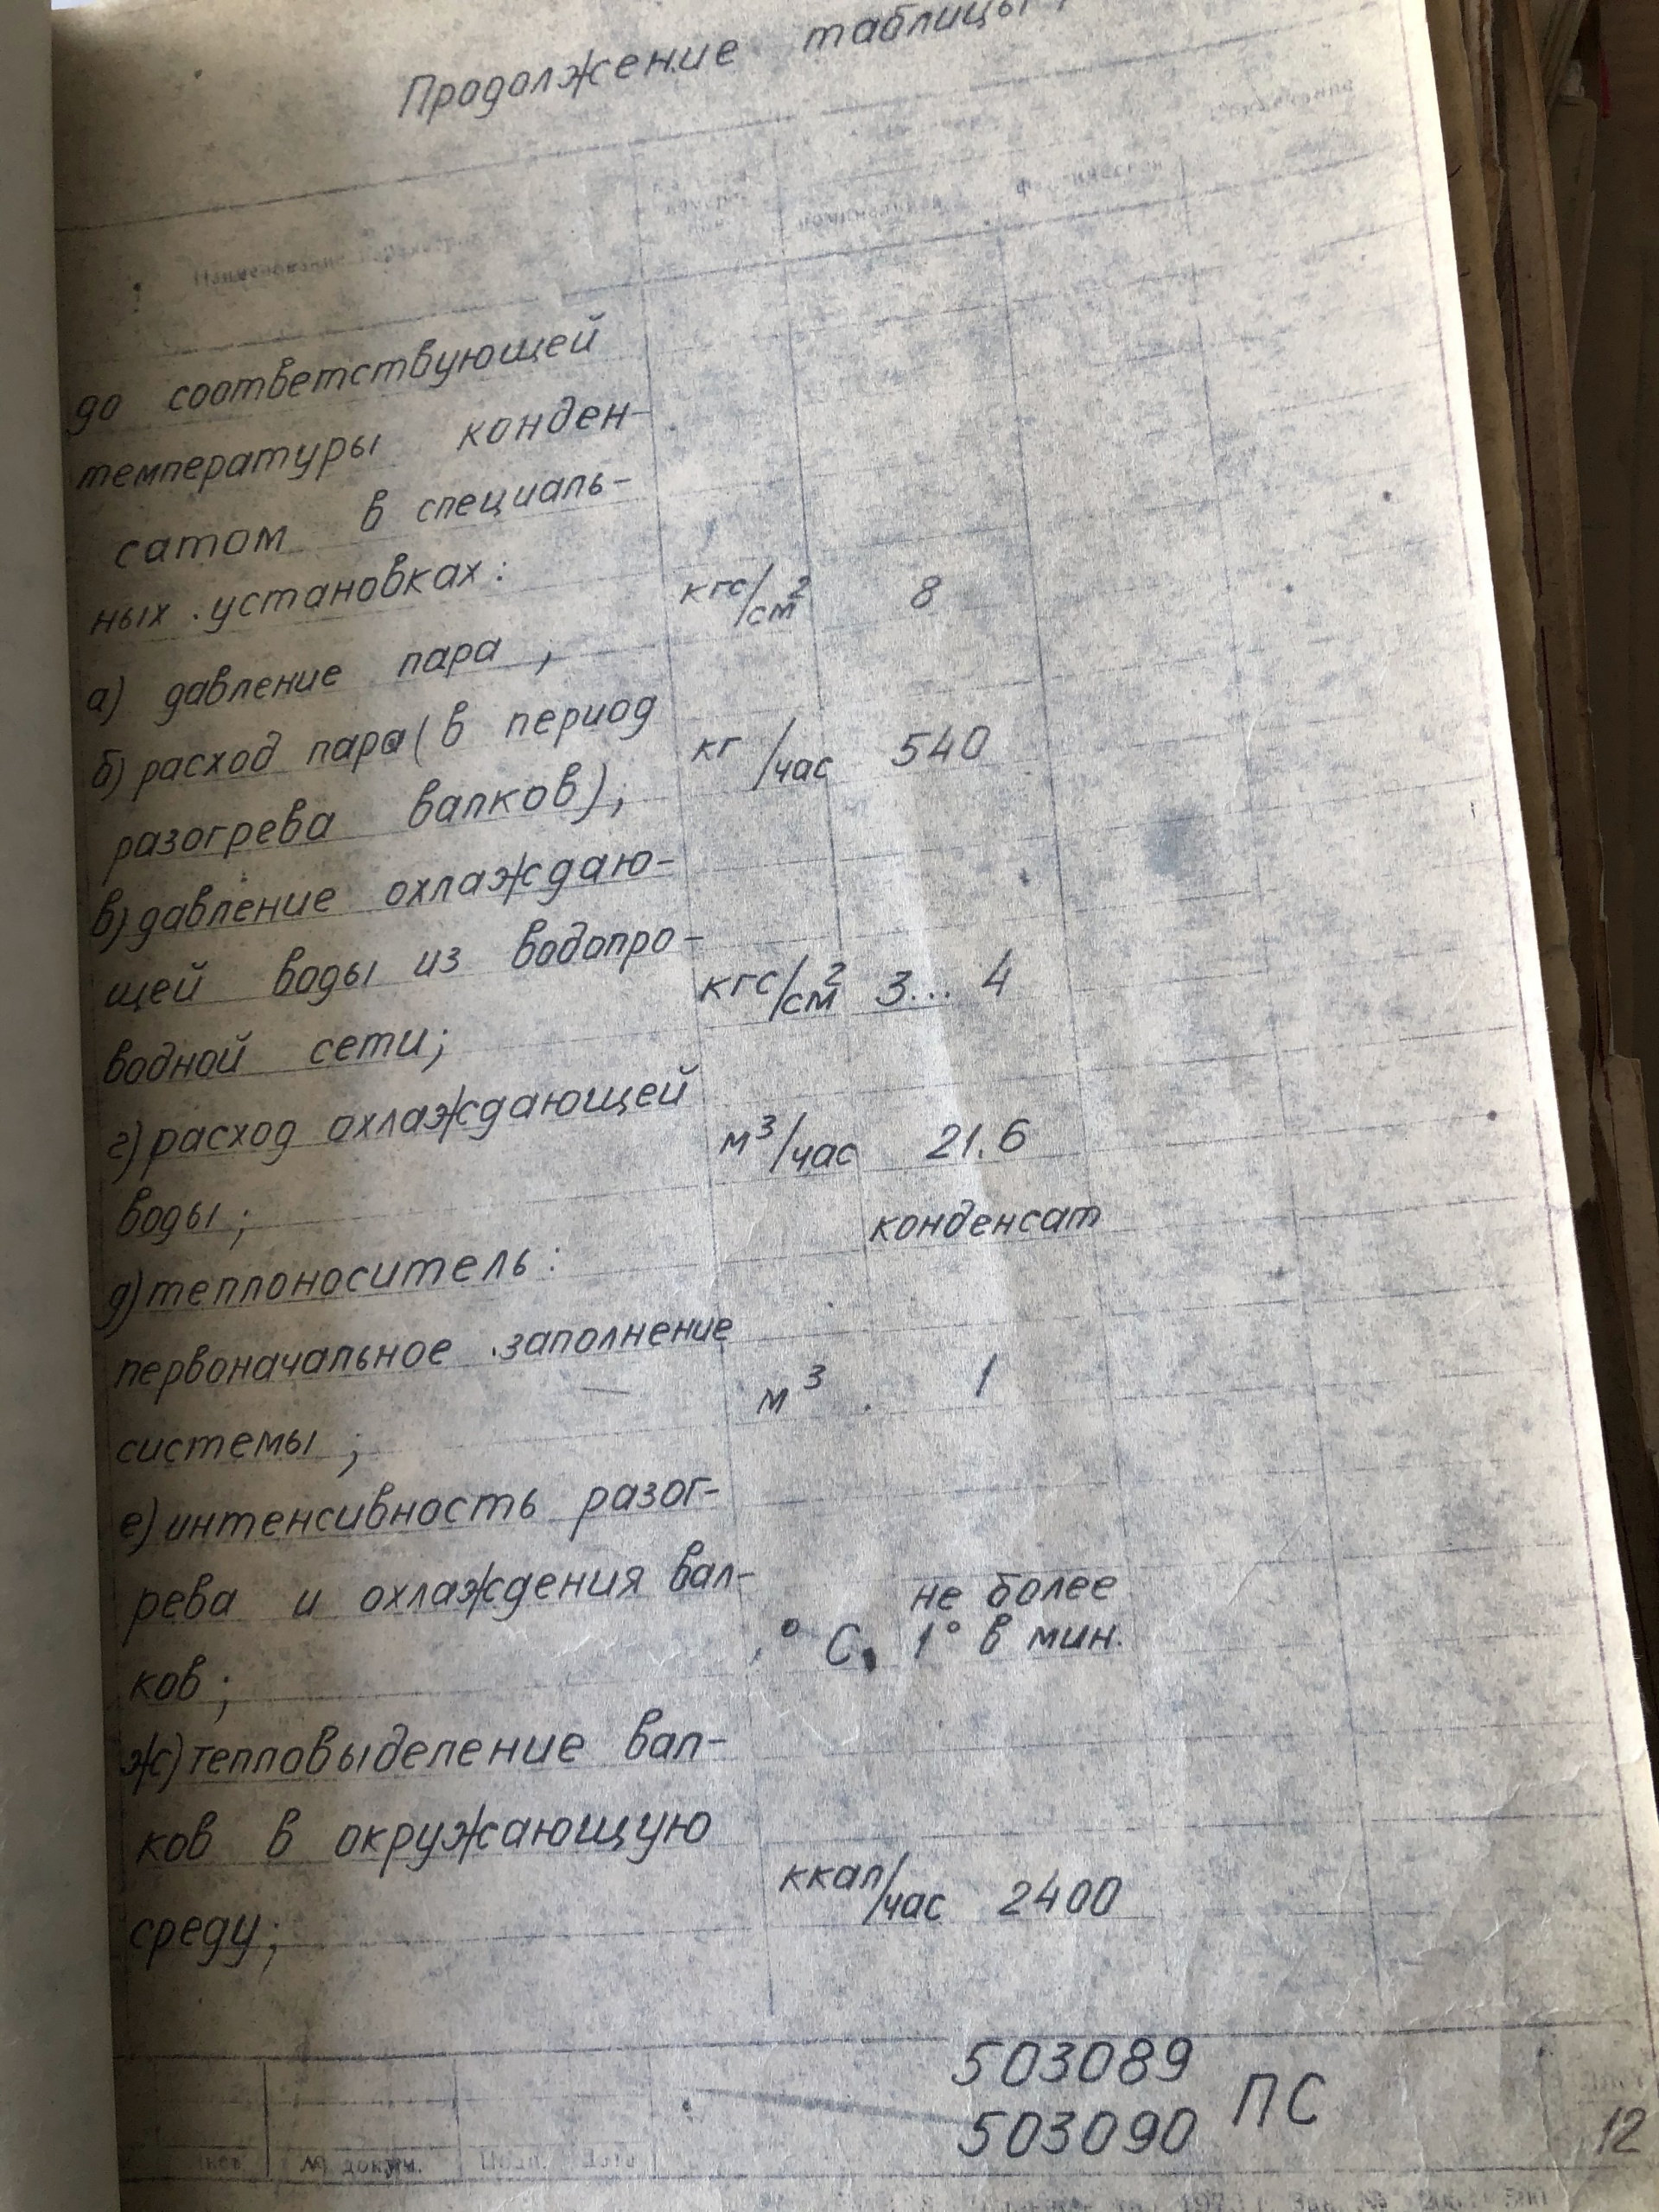 Продолжение таблицы
Наименование параметра
до соответствующей
температуры конден-
сатом в специаль-
ных установках:
а) давление пара, кгс/см² 8
б) расход пара (в период
разогрева валков), кг/час 540
в) давление охлаждаю-
щей воды из водопро-
водной сети; кгс/см² 3... 4
г) расход охлаждающей
воды; м³/час 21.6
д) теплоноситель: конденсат
первоначальное заполнение
системы; м³ 1
е) интенсивность разог-
рева и охлаждения вал-
ков; °С. не более
1° в мин.
ж) тепловыделение вал-
ков в окружающую
среду; ккал/час 2400
503089
503090 ПС
12
№ докум. Подп. Дата